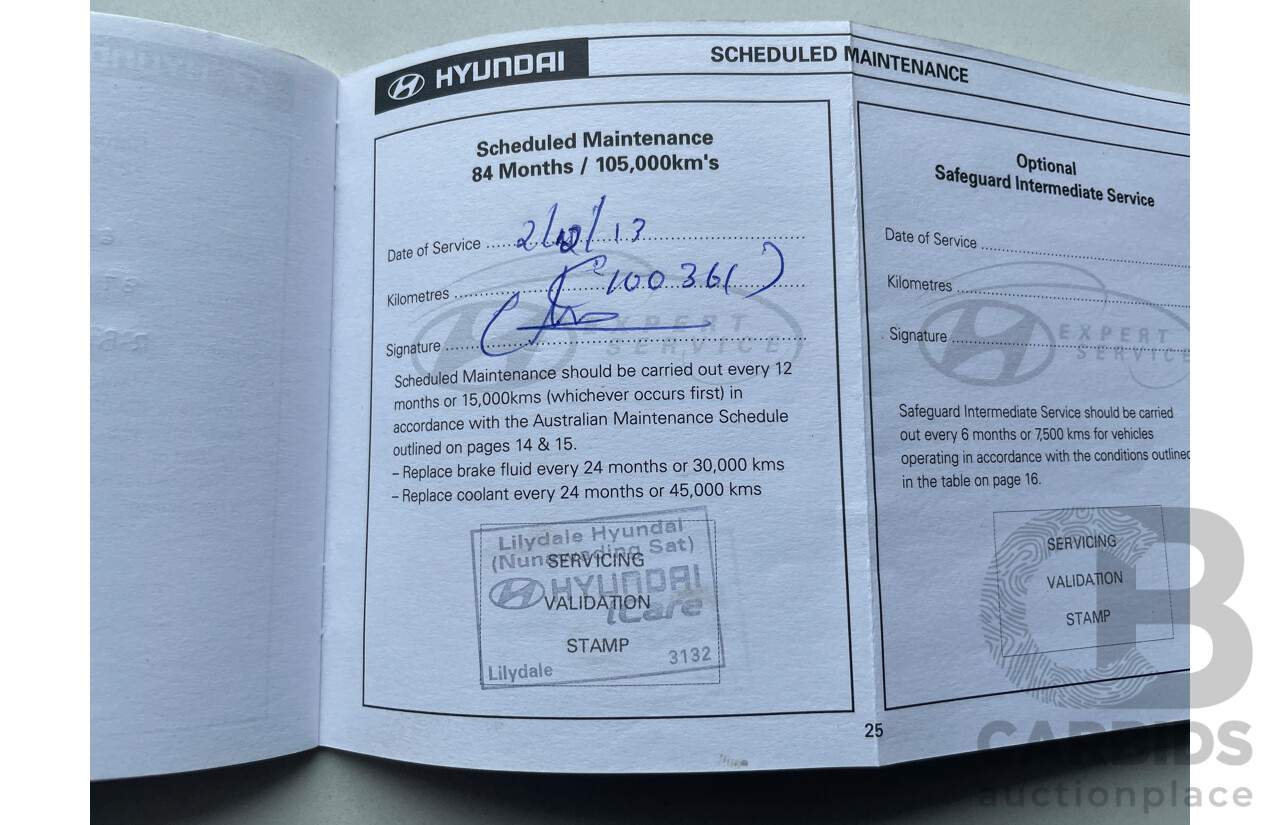 HYUNDAI
SCHEDULED MAINTENANCE
Scheduled Maintenance
84 Months / 105,000km's
Date of Service 2/12/13
Kilometres 100361
Signature
EXPERT
SERVICE
Scheduled Maintenance should be carried out every 12
months or 15,000kms (whichever occurs first) in
accordance with the Australian Maintenance Schedule
outlined on pages 14 & 15.
– Replace brake fluid every 24 months or 30,000 kms
– Replace coolant every 24 months or 45,000 kms
Lilydale Hyundai
SERVICING
HYUNDAI
VALIDATION
iCare
STAMP
Lilydale 3132
Optional
Safeguard Intermediate Service
Date of Service
Kilometres
Signature
EXPERT
SERVICE
Safeguard Intermediate Service should be carried
out every 6 months or 7,500 kms for vehicles
operating in accordance with the conditions outlined
in the table on page 16.
SERVICING
VALIDATION
STAMP
25
CB
CARBIDS
auctionplace